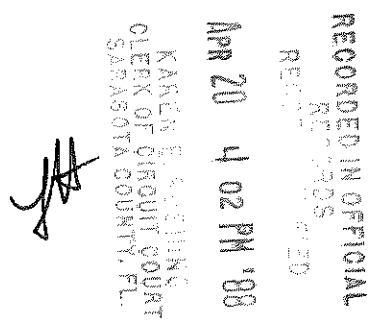 RECORDED IN OFFICIAL
RECORDS
APR 20 4 02 PM '88
KAREN
CLERK OF CIRCUIT COURT
SARASOTA COUNTY, FL.